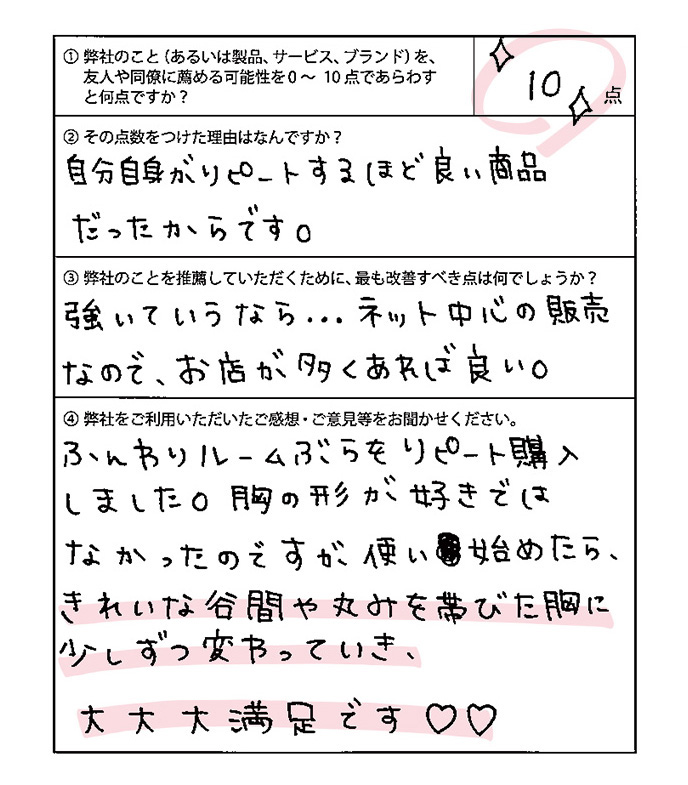 ① 弊社のこと（あるいは製品、サービス、ブランド）を、
友人や同僚に薦める可能性を0～ 10点であらわす
と何点ですか？
10 点
② その点数をつけた理由はなんですか？
自分自身がリピートするほど良い商品
だったからです。
③ 弊社のことを推薦していただくために、最も改善すべき点は何でしょうか？
強いていうなら...ネット中心の販売
なので、お店が多くあれば良い。
④ 弊社をご利用いただいたご感想・ご意見等をお聞かせください。
ふんわりルームぶらをリピート購入
しました。胸の形が好きでは
なかったのですが、使い始めたら、
きれいな谷間や丸みを帯びた胸に
少しずつ変わっていき、
大大大満足です♡♡